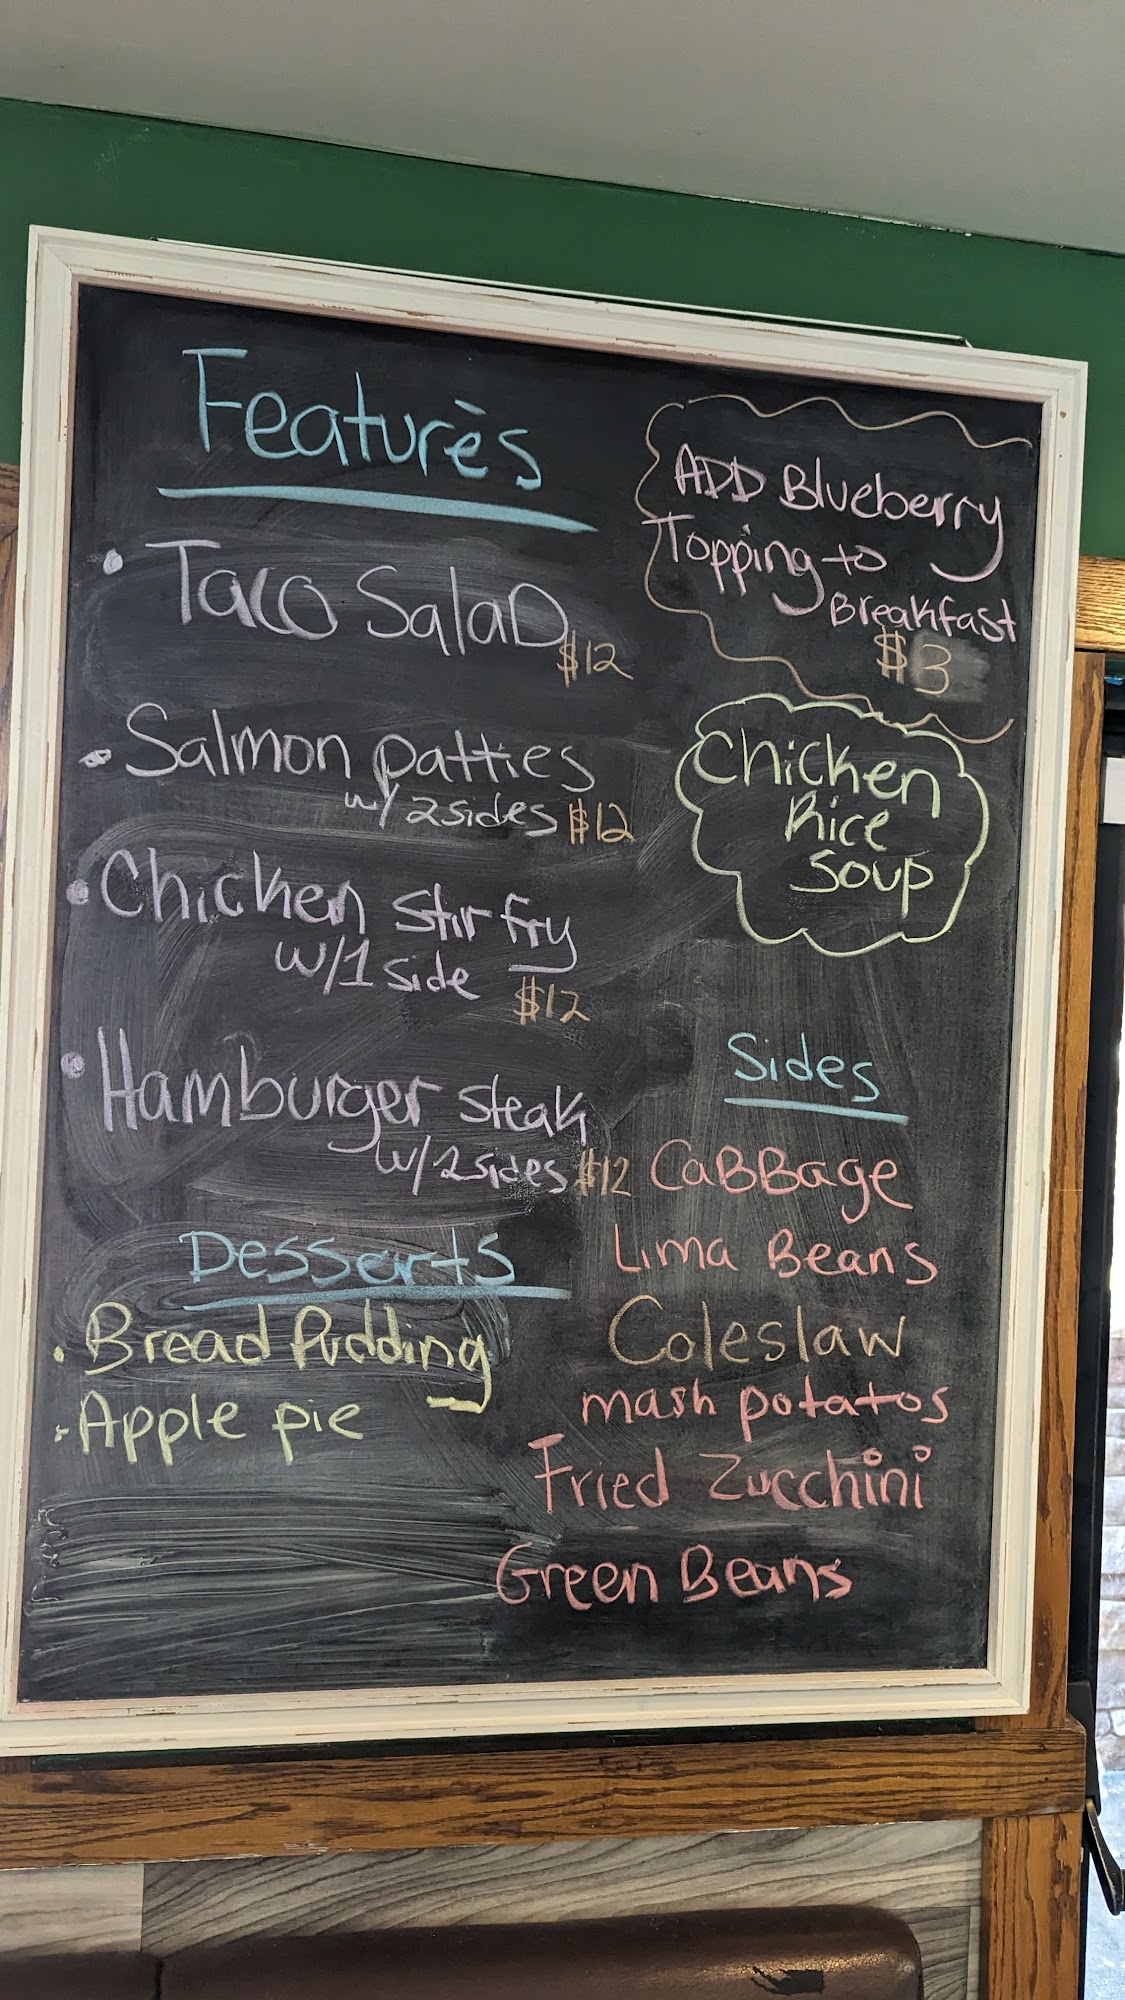 Features
• Taco SalaD
$12
• Salmon patties
w/ 2 sides $12
• Chicken stir fry
w/1 side $12
• Hamburger steak
w/ 2 sides $12
Desserts
• Bread Pudding
• Apple pie
ADD Blueberry
Topping to
Breakfast
$3
Chicken
Rice
Soup
Sides
CaBBage
Lima Beans
Coleslaw
mash potatos
Fried Zucchini
Green Beans